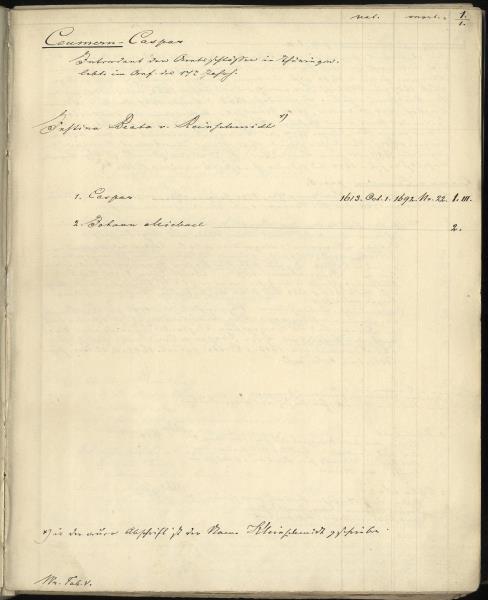 nat. mort. 1.
1.
Ceumern - Caspar
Intendant der Amtsschlösser in Thüringen.
lebte im Anf. des 17t Jahrh.
Justina Beata v. Reinschmidt *)
1. Caspar 1613. Oct. 1. 1692. No. 22. 1. III.
2. Johann Michael 2.
*) in der Abschrift ist der Name Kleinschmidt geschrieben.
Tab. V.